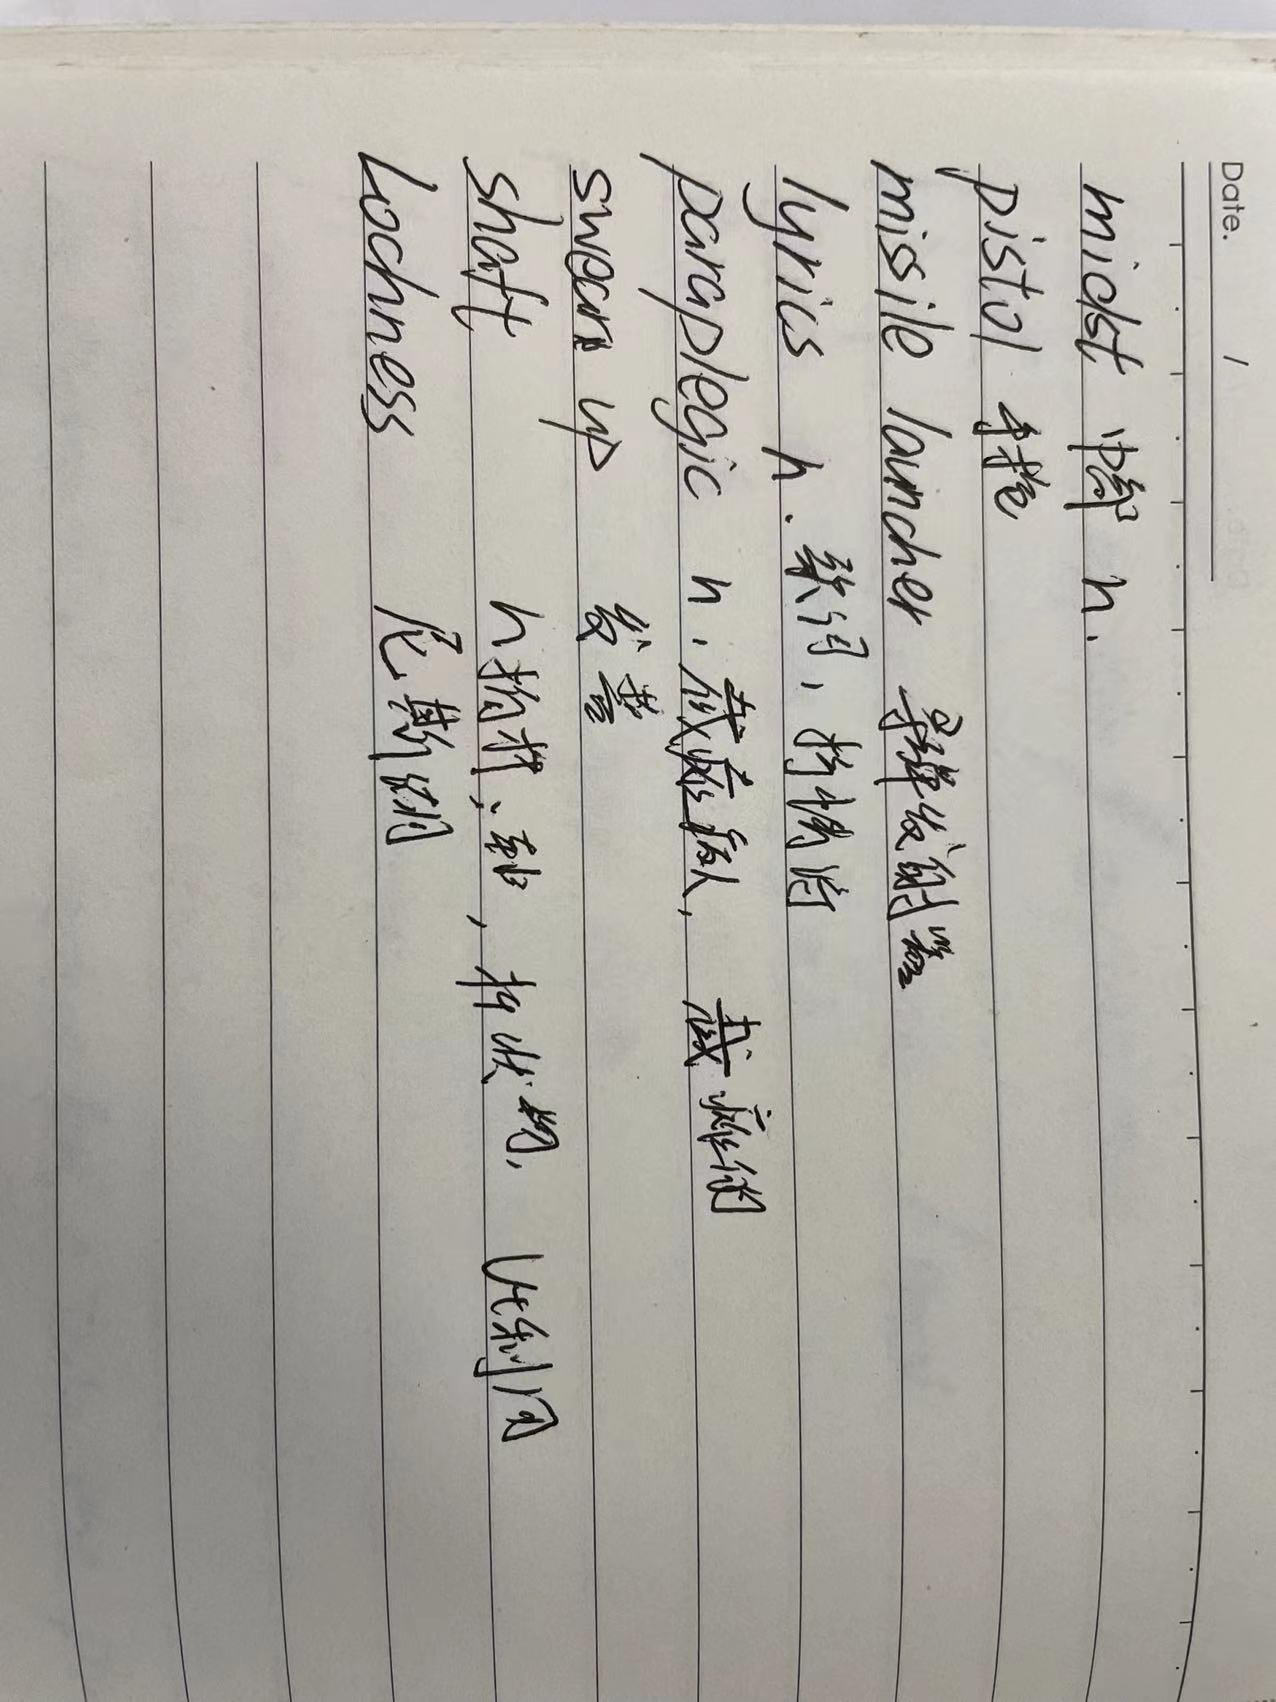 Date. /
midst 中部 n.
pistol 手枪
missile launcher 导弹发射器
lyrics n. 歌词, 抒情诗
paraplegic n. 截瘫病人, 截瘫的
swear up 发誓
shaft n 柄, 轴, 杆状物, vt 利用
Lochness 尼斯湖